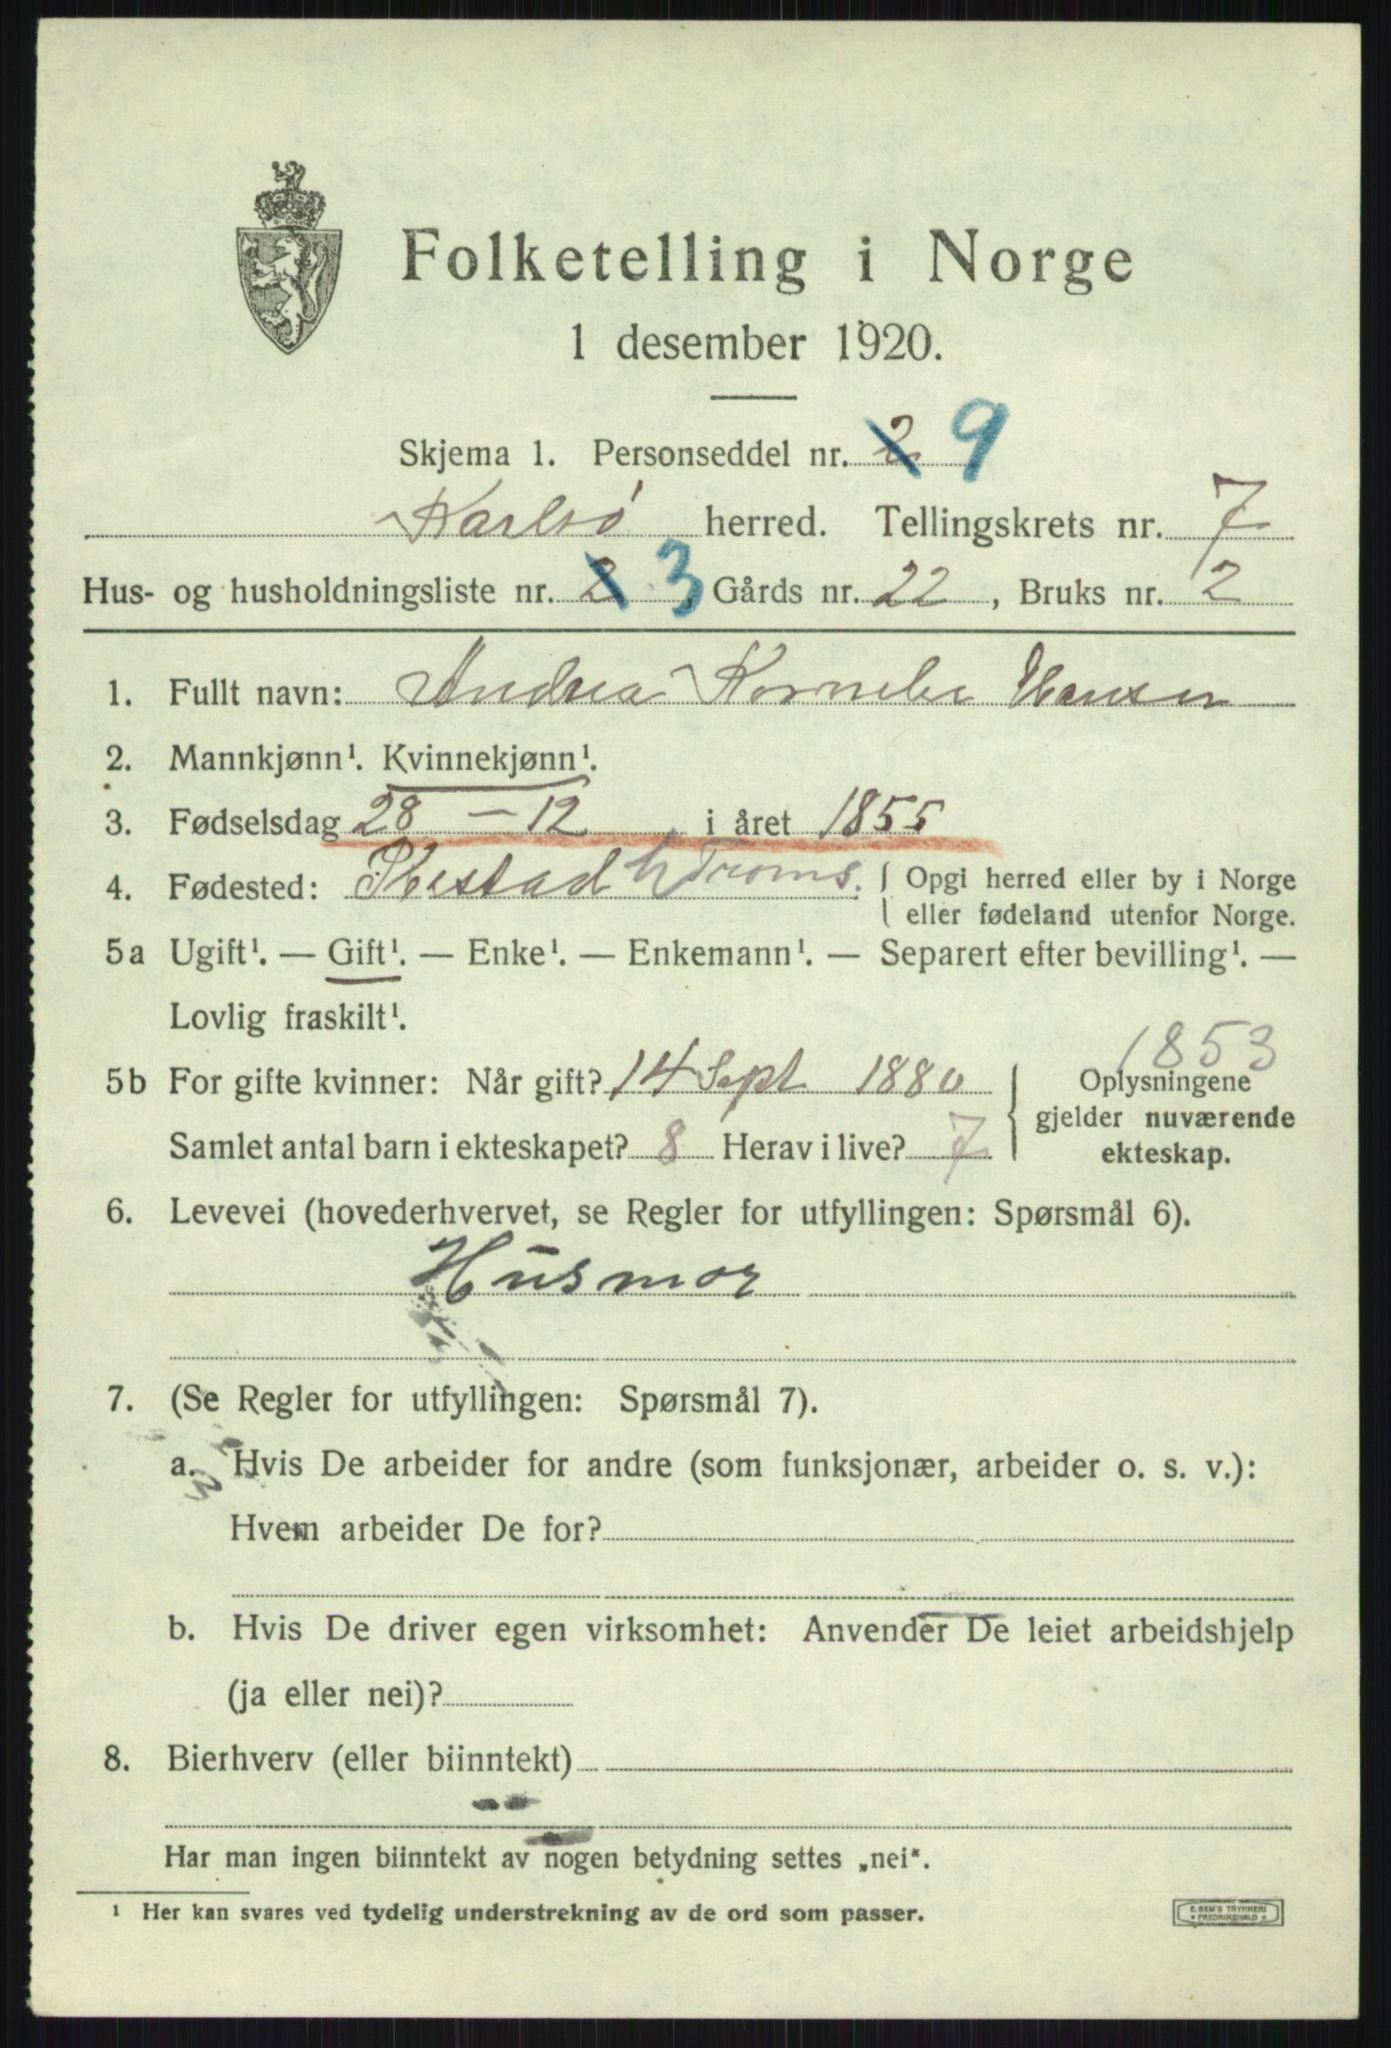 Folketelling i Norge
1 desember 1920.
Skjema 1. Personseddel nr. 2 9
Karlsø herred. Tellingskrets nr. 7
Hus- og husholdningsliste nr. 2 3, Gårds nr. 22, Bruks nr. 2
1. Fullt navn: Andrea Hansen
2. Mannkjønn¹. Kvinnekjønn¹.
3. Fødselsdag 28 – 12, i året 1855
4. Fødested: Ibestad Troms. { Opgi herred eller by i Norge
eller fødeland utenfor Norge.
5a Ugift¹. — Gift¹. — Enke¹. — Enkemann¹. — Separert efter bevilling¹. —
Lovlig fraskilt¹.
1853
5b For gifte kvinner: Når gift? 14 Sept 1880 { Oplysningene
gjelder nuværende
Samlet antal barn i ekteskapet? 8 Herav i live? 7 ekteskap.
6. Levevei (hovederhvervet, se Regler for utfyllingen: Spørsmål 6).
Husmor
7. (Se Regler for utfyllingen: Spørsmål 7).
a. Hvis De arbeider for andre (som funksjonær, arbeider o. s. v.):
Hvem arbeider De for?
b. Hvis De driver egen virksomhet: Anvender De leiet arbeidshjelp
(ja eller nei)?
8. Bierhverv (eller biinntekt)
Har man ingen biinntekt av nogen betydning settes „nei“.
¹ Her kan svares ved tydelig understrekning av de ord som passer.
E. SEM'S TRYKKERI
• FREDRIKSHALD •